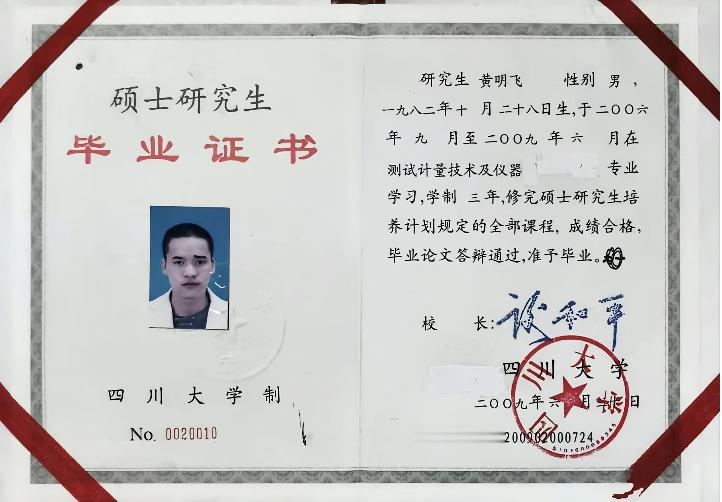 硕士研究生
毕业证书
四川大学制
No. 0020010
研究生 黄明飞 性别 男，
一九八二年十月二十八日生,于二〇〇六
年九月至二〇〇九年六月在
测试计量技术及仪器 专业
学习,学制 三年,修完硕士研究生培
养计划规定的全部课程, 成绩合格,
毕业论文答辩通过,准予毕业。
校 长: 谢和平
四川大学
二〇〇九年六月二十日
200902000724
四川大学